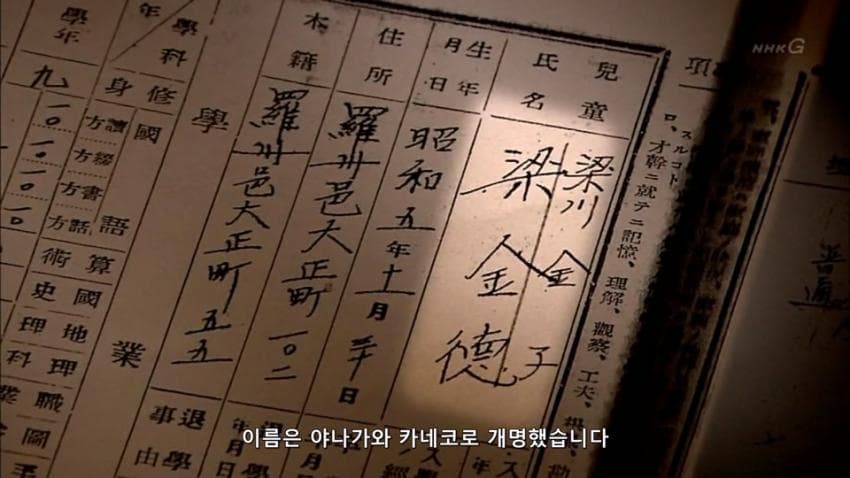 NHK G
普通
項
スルコト
ロ、才幹ニ就テニ記憶、理解、觀察、工夫、
兒童
氏名
梁川金子
梁金德
生年月日
昭和五年十一月 日
住所
羅州邑大正町一〇二
本籍
羅州邑大正町五五
退學
事由
學業
學科
學年
修身
國語
讀方
綴方
書方
話方
算術
國史
地理
理科
職業
圖
九
一〇
一〇
一〇
이름은 야나가와 카네코로 개명했습니다